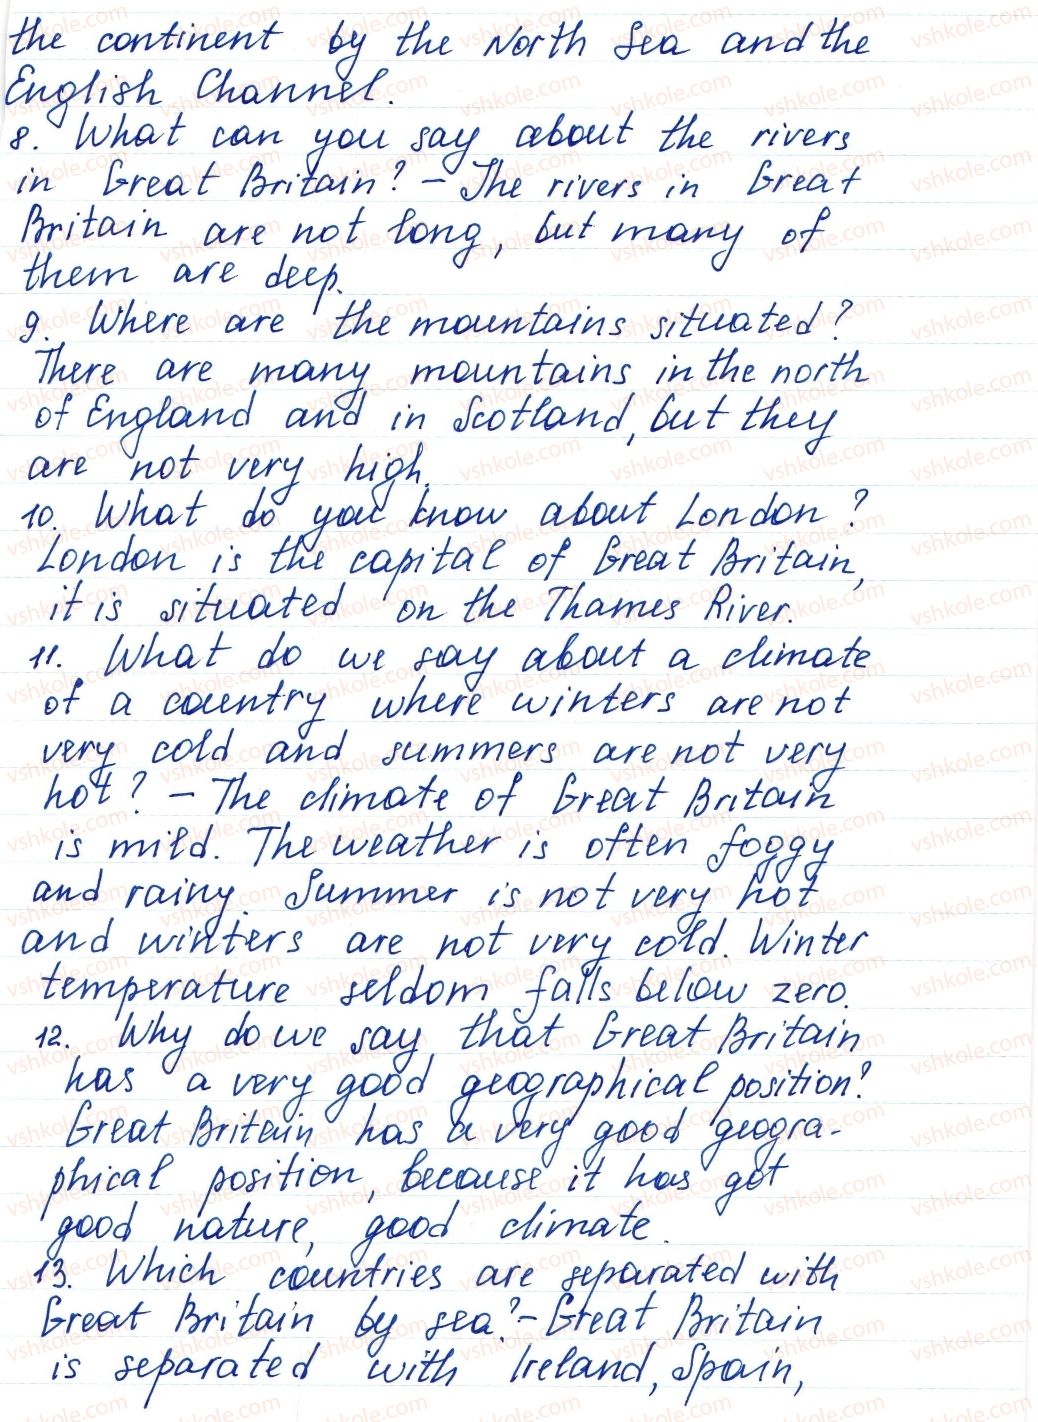 the continent by the North Sea and the
English Channel.
8. What can you say about the rivers
in Great Britain? – The rivers in Great
Britain are not long, but many of
them are deep.
9. Where are the mountains situated?
There are many mountains in the north
of England and in Scotland, but they
are not very high.
10. What do you know about London?
London is the capital of Great Britain,
it is situated on the Thames River.
11. What do we say about a climate
of a country where winters are not
very cold and summers are not very
hot? – The climate of Great Britain
is mild. The weather is often foggy
and rainy. Summer is not very hot
and winters are not very cold. Winter
temperature seldom falls below zero.
12. Why do we say that Great Britain
has a very good geographical position?
Great Britain has a very good geogra-
phical position, because it has got
good nature, good climate.
13. Which countries are separated with
Great Britain by sea? – Great Britain
is separated with Ireland, Spain,